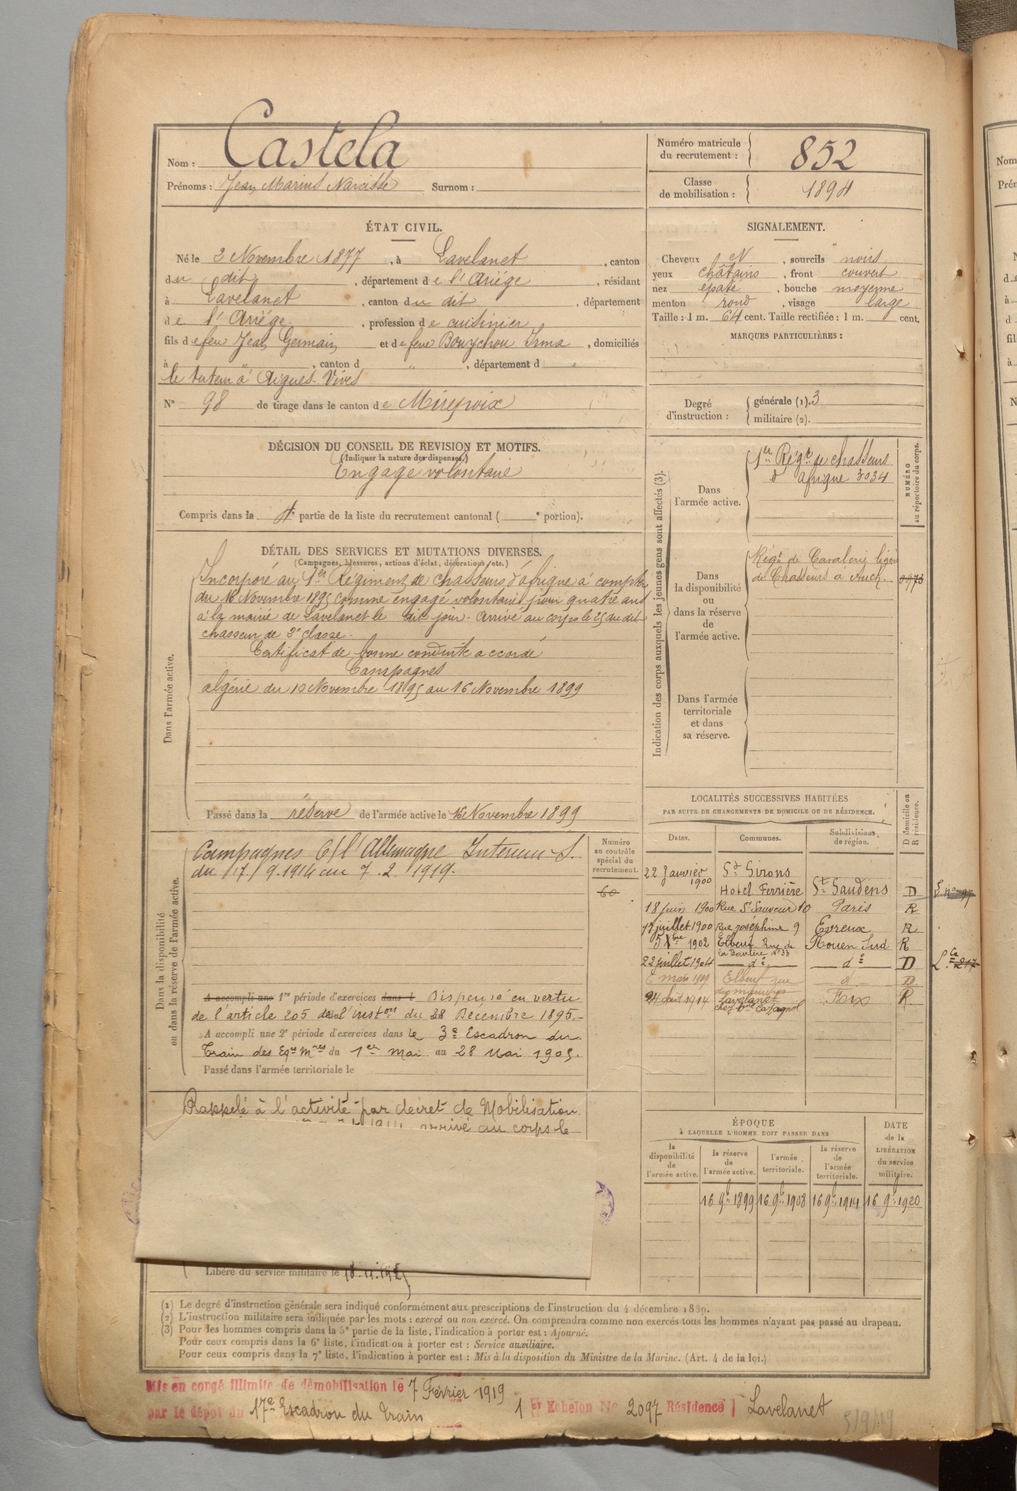 Nom : Castela
Prénoms : Jean Marius Narcisse Surnom :
Numéro matricule du recrutement : 852
Classe de mobilisation : 1894
ÉTAT CIVIL.
Né le 2 Novembre 1877, à Lavelanet, canton
du dit, département de l'Ariége, résidant
à Lavelanet, canton du dit, département
de l'Ariége, profession de cuisinier
fils de feu Jean Germain et de feue Bouychou Irma, domiciliés
à , canton d " , département d "
le tuteur à Aigues-Vives
N° 98 de tirage dans le canton de Mirepoix
SIGNALEMENT.
Cheveux N, sourcils noirs
yeux châtains, front couvert
nez épaté, bouche moyenne
menton rond, visage large
Taille : 1 m. 64 cent. Taille rectifiée : 1 m. cent.
MARQUES PARTICULIÈRES :
Degré d'instruction : générale (1). 3
militaire (2).
DÉCISION DU CONSEIL DE REVISION ET MOTIFS.
(Indiquer la nature des dispenses.)
Engagé volontaire
Compris dans la partie de la liste du recrutement cantonal ( portion).
Indication des corps auxquels les jeunes gens sont affectés (3).
NUMÉRO au répertoire du corps.
Dans l'armée active.
1er Régt de chasseurs
d'afrique 3034
Dans la disponibilité ou dans la réserve de l'armée active.
Régt de Cavalerie légère
de Chasseurs a Auch
Dans l'armée territoriale et dans sa réserve.
DÉTAIL DES SERVICES ET MUTATIONS DIVERSES.
(Campagnes, blessures, actions d'éclat, décorations, etc.)
Dans l'armée active.
Incorporé au 1er Régiment de chasseurs d'afrique à compter
du 16 Novembre 1895 comme engagé volontaire pour quatre ans
à la mairie de Lavelanet le dit jour. Arrivé au corps le 25 au dit
chasseur de 2e classe.
Certificat de bonne conduite accordé
Campagnes
algérie du Novembre 1895 au 16 Novembre 1899
Passé dans la réserve de l'armée active le 16 Novembre 1899
Dans la disponibilité ou dans la réserve de l'armée active.
Numéro au contrôle spécial du recrutement.
60
Campagnes C/ l'Allemagne Intérieur S.
du 17/9.1914 au 7.2.1919.
A accompli une 1re période d'exercices dans l Dispensé en vertu
de l'article 205 de l'instons du 28 Décembre 1895.-
A accompli une 2e période d'exercices dans le 3e Escadron du
Train des Eqes Mres du 1er mai au 28 Mai 1905.
Passé dans l'armée territoriale le
Rappelé à l'activité par décret de Mobilisation
1914 arrivé au corps le
Libéré du service militaire le
LOCALITÉS SUCCESSIVES HABITÉES
PAR SUITE DE CHANGEMENTS DE DOMICILE OU DE RÉSIDENCE.
D domicile ou R résidence.
Dates. Communes. Subdivisions de région.
22 Janvier 1900 St Girons Hotel Ferrière St Gaudens D
18 juin 1900 Rue St Sauveur 10 Paris R
17 juillet 1900 Rue Joséphine 9 Evreux R
5 Xbre 1902 Elbeuf Rue de la Barrière N° 38 Rouen Sud R
22 juillet 1904 — do — — do — D
mars 1909 Elbeuf rue d D
août 1914 Lavelanet chez Foix R
ÉPOQUE
A LAQUELLE L'HOMME DOIT PASSER DANS
la disponibilité de l'armée active.
la réserve de l'armée active.
l'armée territoriale.
la réserve de l'armée territoriale.
DATE de la LIBÉRATION du service militaire.
16 9bre 1899 16 9bre 1908 16 9bre 1914 16 9bre 1920
(1) Le degré d'instruction générale sera indiqué conformément aux prescriptions de l'instruction du 4 décembre 1889.
(2) L'instruction militaire sera indiquée par les mots : exercé ou non exercé. On comprendra comme non exercés tous les hommes n'ayant pas passé au drapeau.
(3) Pour les hommes compris dans la 5e partie de la liste, l'indication à porter est : Ajourné.
Pour ceux compris dans la 6e liste, l'indication à porter est : Service auxiliaire.
Pour ceux compris dans la 7e liste, l'indication à porter est : Mis à la disposition du Ministre de la Marine. (Art. 4 de la loi.)
Mis en congé illimité de démobilisation le 7 Février 1919
par le dépôt du 17e Escadron du train 1er Echelon No 2097 Résidence Lavelanet